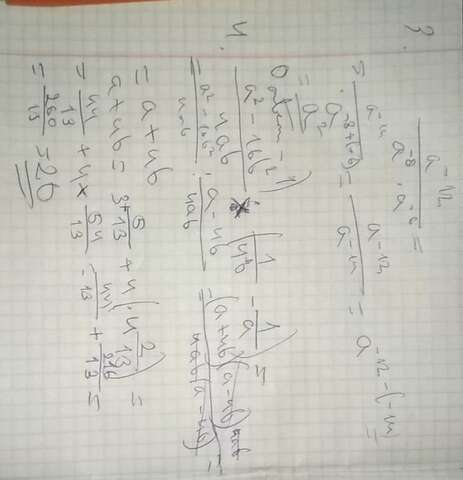 3.
a⁻¹² / a⁻⁸ · a⁻⁶ =
= a⁻¹² / a⁻⁸⁺⁽⁻⁶⁾ = a⁻¹² / a⁻¹⁴ = a⁻¹²⁻⁽⁻¹⁴⁾ =
= a²
Ответ -
4.
a² - 16b² / 4ab : (1 / 4b - 1 / a) =
= a² - 16b² / 4ab : a - 4b / 4ab = (a + 4b)(a - 4b) 4ab / 4ab(a - 4b) =
= a + 4b
a + 4b = 3 5/13 + 4(·4 2/13) =
= 44/13 + 4 × 54/13 = 44/13 + 216/13 =
= 260/13 = 20